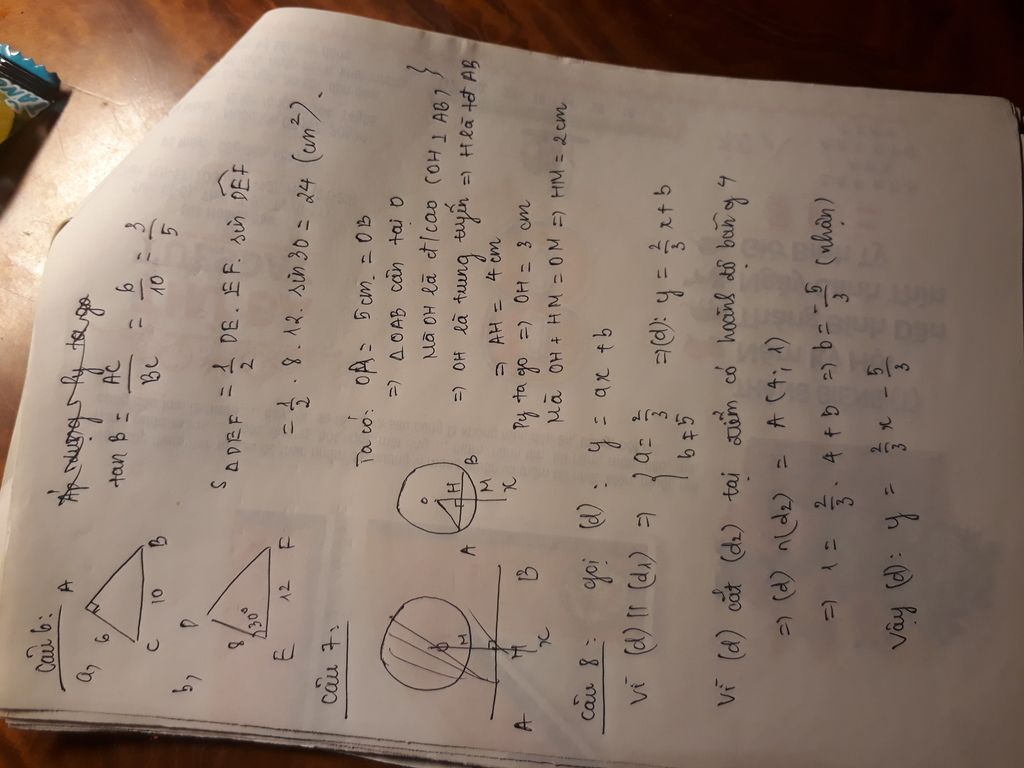 Câu 6:
a, A
6
C 10 B
Áp dụng Py ta go
tan B = AC / BC = 6/10 = 3/5
b, D
8
30°
E 12 F
S ΔDEF = 1/2 DE. EF. sin DEF
= 1/2 . 8 . 12 . sin 30 = 24 (cm²).
Câu 7:
H
A B
x
O
H
A B
M
x
Ta có: OA = 5cm = OB
=> ΔOAB cân tại O
Mà OH là đ/cao (OH ⊥ AB) }
=> OH là trung tuyến => H là tđ AB
=> AH = 4cm
Py ta go => OH = 3 cm
Mà OH + HM = OM => HM = 2cm
Câu 8: gọi (d) : y = ax + b
Vì (d) // (d1) => { a = 2/3 => (d): y = 2/3 x + b
b ≠ 5
Vì (d) cắt (d2) tại điểm có hoành độ bằng 4
=> (d) ∩ (d2) = A (4; 1)
=> 1 = 2/3 . 4 + b => b = -5/3 (nhận)
Vậy (d): y = 2/3 x - 5/3